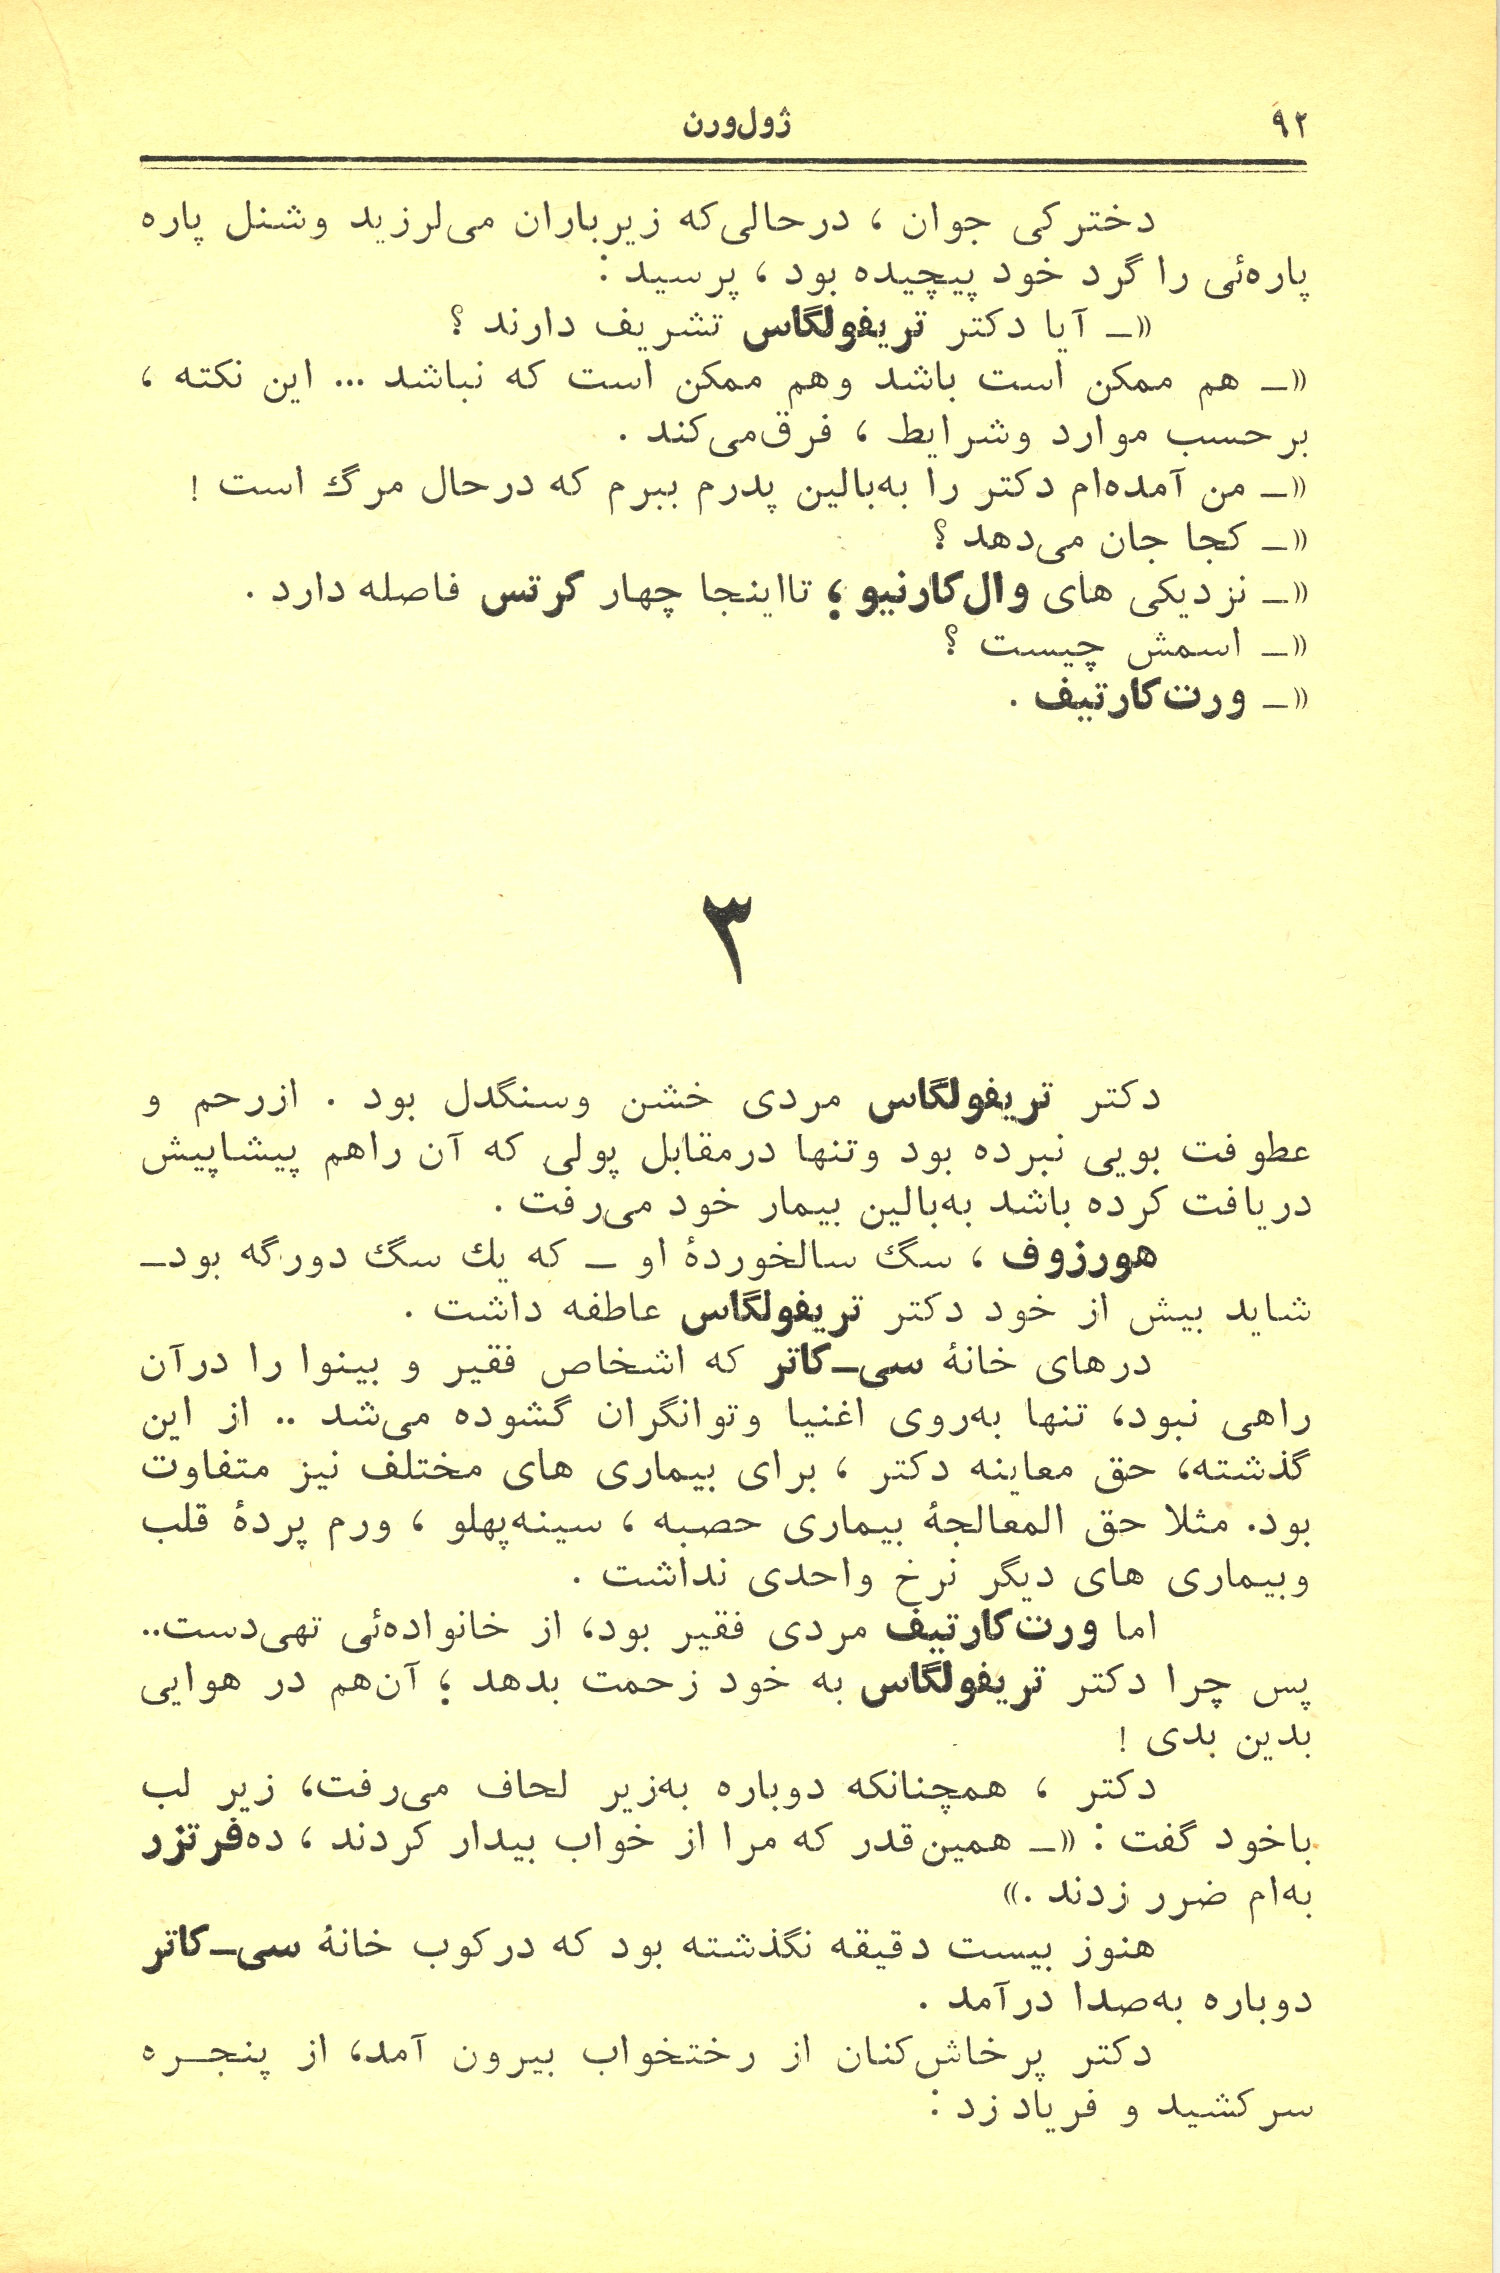 ۹۲
ژول‌ورن
دخترکی جوان ، درحالی‌که زیرباران می‌لرزید وشنل پاره
پاره‌ئی را گرد خود پیچیده بود ، پرسید :
«ـ آیا دکتر تریفولگاس تشریف دارند ؟
«ـ هم ممکن است باشد وهم ممکن است که نباشد ... این نکته ،
برحسب موارد وشرایط ، فرق‌می‌کند .
«ـ من آمده‌ام دکتر را به‌بالین پدرم ببرم که درحال مرگ است !
«ـ کجا جان می‌دهد ؟
«ـ نزدیکی های وال‌کارنیو ؛ تااینجا چهار کرتس فاصله دارد .
«ـ اسمش چیست ؟
«ـ ورت‌کارتیف .
۳
دکتر تریفولگاس مردی خشن وسنگدل بود . ازرحم و
عطوفت بویی نبرده بود وتنها درمقابل پولی که آن راهم پیشاپیش
دریافت کرده باشد به‌بالین بیمار خود می‌رفت .
هورزوف ، سگ سالخوردهٔ او ـ که یك سگ دورگه بودـ
شاید بیش از خود دکتر تریفولگاس عاطفه داشت .
درهای خانهٔ سی‌ـ‌کاتر که اشخاص فقیر و بینوا را درآن
راهی نبود، تنها به‌روی اغنیا وتوانگران گشوده می‌شد .. از این
گذشته، حق معاینه دکتر ، برای بیماری های مختلف نیز متفاوت
بود. مثلا حق المعالجهٔ بیماری حصبه ، سینه‌پهلو ، ورم پردهٔ قلب
وبیماری های دیگر نرخ واحدی نداشت .
اما ورت‌کارتیف مردی فقیر بود، از خانواده‌ئی تهی‌دست..
پس چرا دکتر تریفولگاس به خود زحمت بدهد ؛ آن‌هم در هوایی
بدین بدی !
دکتر ، همچنانکه دوباره به‌زیر لحاف می‌رفت، زیر لب
باخود گفت : «ـ همین‌قدر که مرا از خواب بیدار کردند ، ده‌فرتزر
به‌ام ضرر زدند .»
هنوز بیست دقیقه نگذشته بود که درکوب خانهٔ سی‌ـ‌کاتر
دوباره به‌صدا درآمد .
دکتر پرخاش‌کنان از رختخواب بیرون آمد، از پنجـره
سرکشید و فریاد زد :